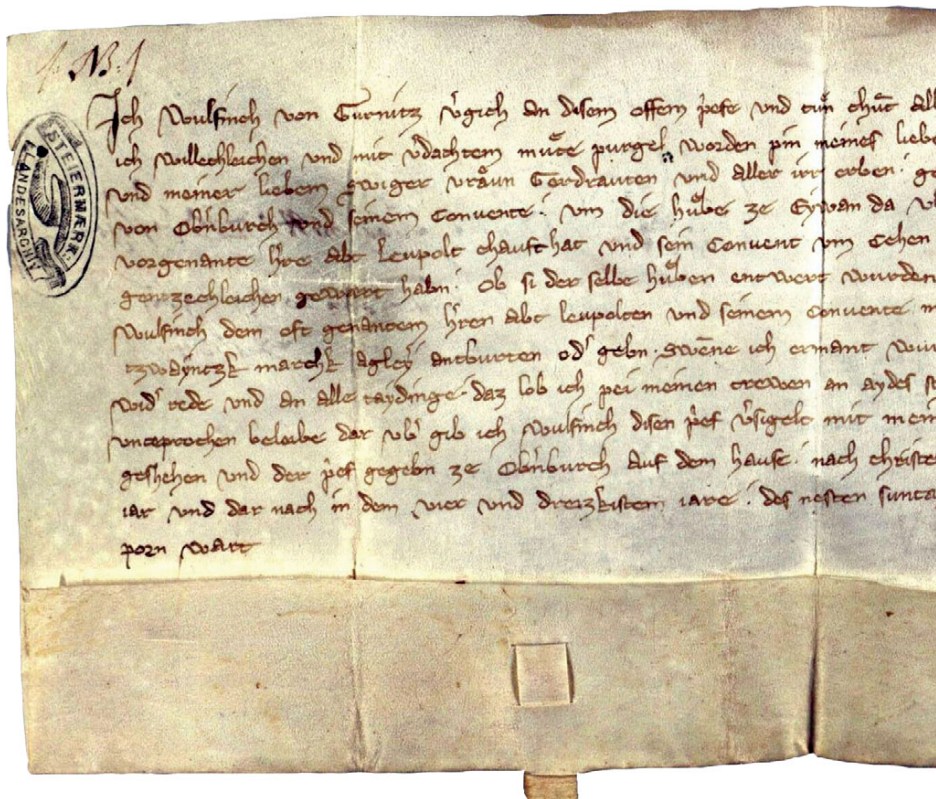 : NB :
STEIERMÆRK. LANDESARCHIV
Ich Wulfinch von Gurnitz v̓gich an disem offem p̓efe vnd tuͤn chuͤt all
ich willechleichen vnd mit v̓dachtem muͤte purgel worden pin meines liebe
vnd meiner lieben swiger vraͤun Gerdrauten vnd aller irr erben. ge
von Obn̓burch vnd seinem Convente. vm die huͤbe ze Eywan da
vorgenante h̓re abt Leupolt chauft hat vnd sein Convent vm Cehen
gentzechleichen gewert habn. Ob si der selbe huͤben entwert wurden
Wulfinch dem oft genantem h̓ren abt leupolten vnd seinem Convente
tzwayntzk marchk agleyͤ antburten od̓ gebn. swēne ich ermant wur
wid̓ rede vnd an alle taydinge. daz lob ich pei meinen trewen an aydes
vnceprochen beleibe dar vb̓ gib ich Wulfinch disen p̓ef v̓sigelt mit mein
geshehen vnd der p̓ef gegebn ze Obn̓burch auf dem hause. nach christe
iar vnd dar nach in dem vier vnd dreizkistem iare. des nesten sunta
porn wart